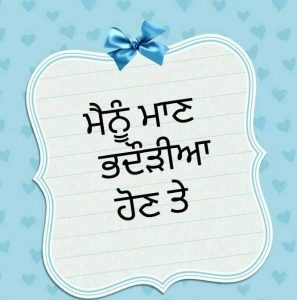 ਮੈਨੂੰ ਮਾਣ
ਭਦੌੜੀਆ
ਹੋਣ ਤੇ